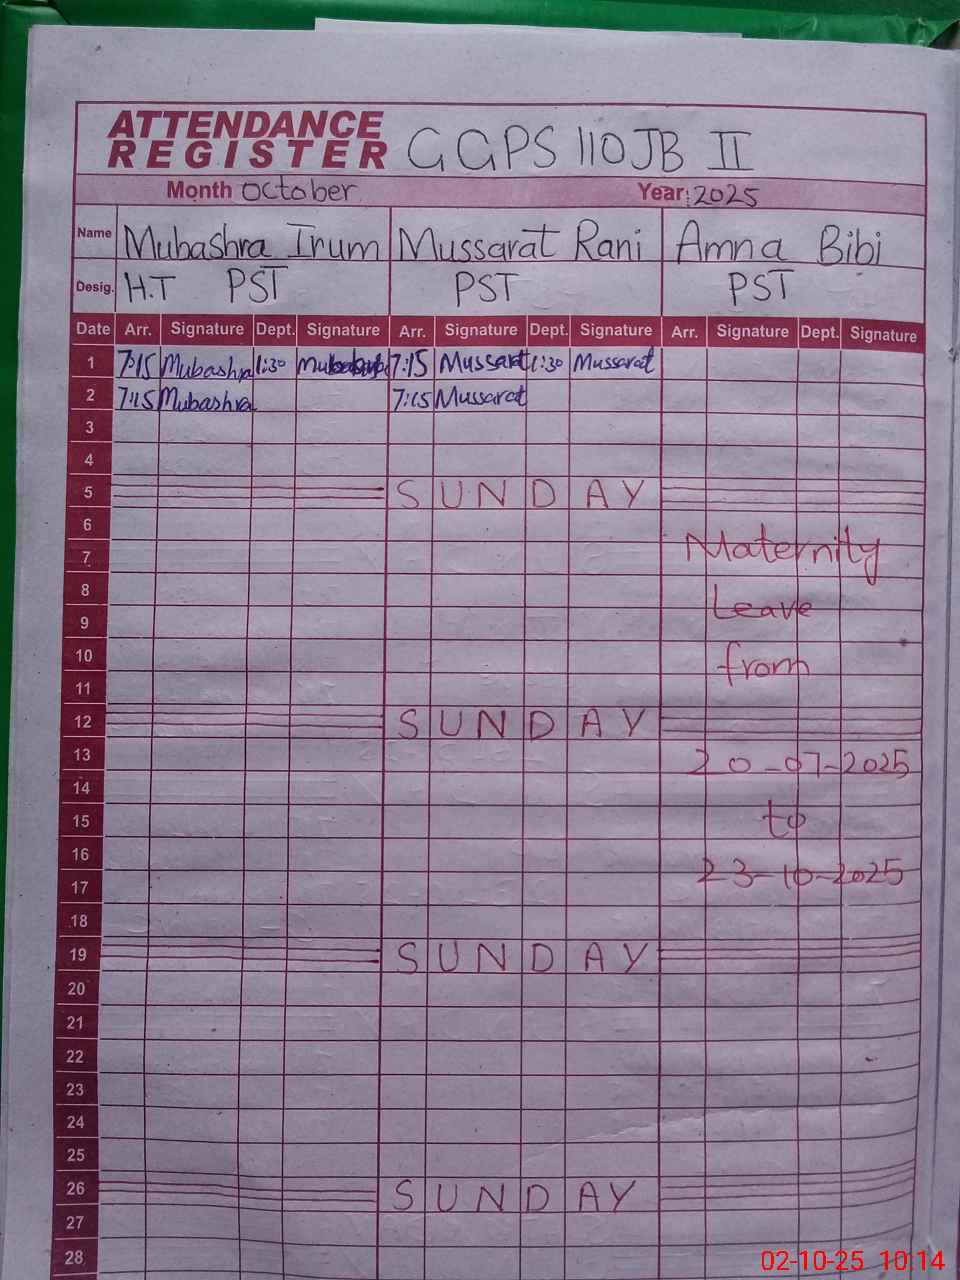 ATTENDANCE
REGISTER GGPS 110JB II
Month October Year: 2025
Name Mubashra Irum Mussarat Rani Amna Bibi
Desig. H.T PST PST PST
Date Arr. Signature Dept. Signature Arr. Signature Dept. Signature Arr. Signature Dept. Signature
1 7:15 Mubashra 1:30 Mubashra 7:15 Mussarat 1:30 Mussarat
2 7:15 Mubashra 7:15 Mussarat
3
4
5 SUNDAY
6
7 Maternity
8
9 Leave
10
from
11
12 SUNDAY
13 20-07-2025
14
15 to
16
17 23-10-2025
18
19 SUNDAY
20
21
22
23
24
25
26 SUNDAY
27
28
02-10-25 10:14